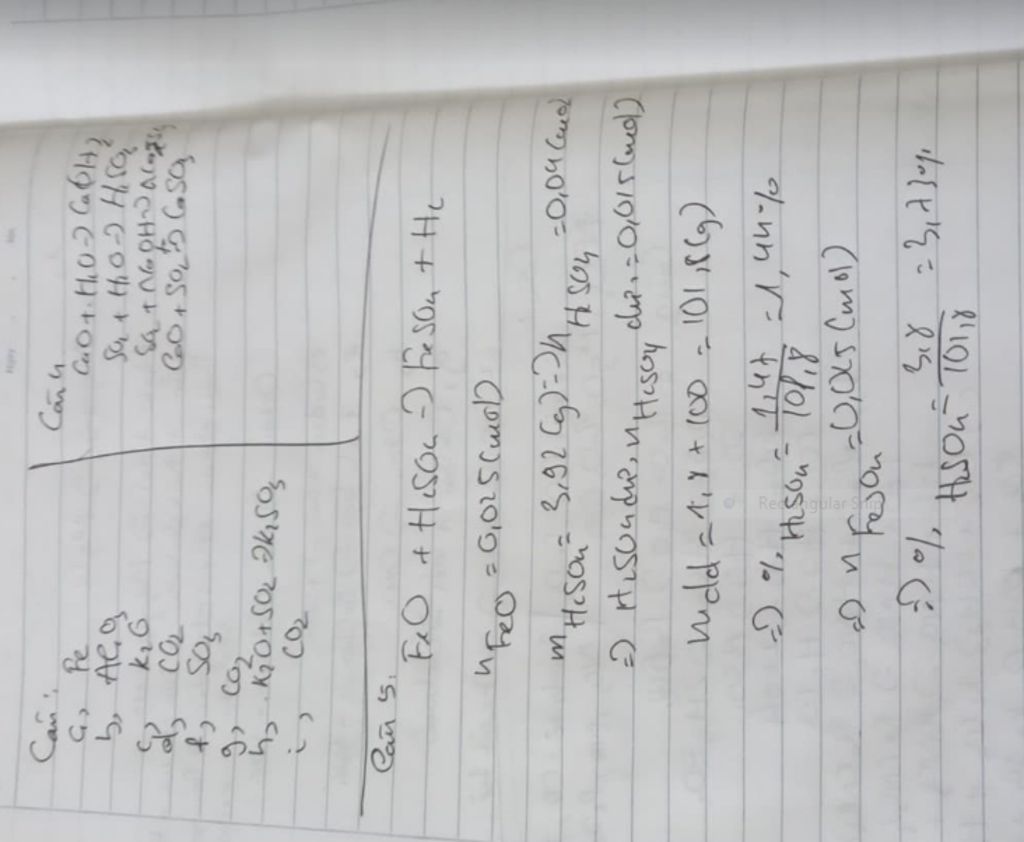 Câu :
a, Fe
b, Al2O3
c, K2O
d, CO2
f, SO3
g, CO2
h, K2O + SO2 → K2SO3
i, CO2
Câu 4
CaO + H2O → Ca(OH)2
SO2 + H2O → H2SO3
CaO + SO2 → CaSO3
Câu 5.
FeO + H2SO4 → FeSO4 + H2
nFeO = 0,025 (mol)
mH2SO4 = 3,92 (g) => nH2SO4 = 0,04 (mol
=> H2SO4 dư, nH2SO4 dư, = 0,015 (mol)
mdd = 1,8 + 100 = 101,8 (g)
=> %, H2SO4 = 1,47/101,8 = 1,44%
=> nFeSO4 = 0,025 (mol)
=> %, H2SO4 = 3,8/101,8 = 3,73%
Rectangular Snip